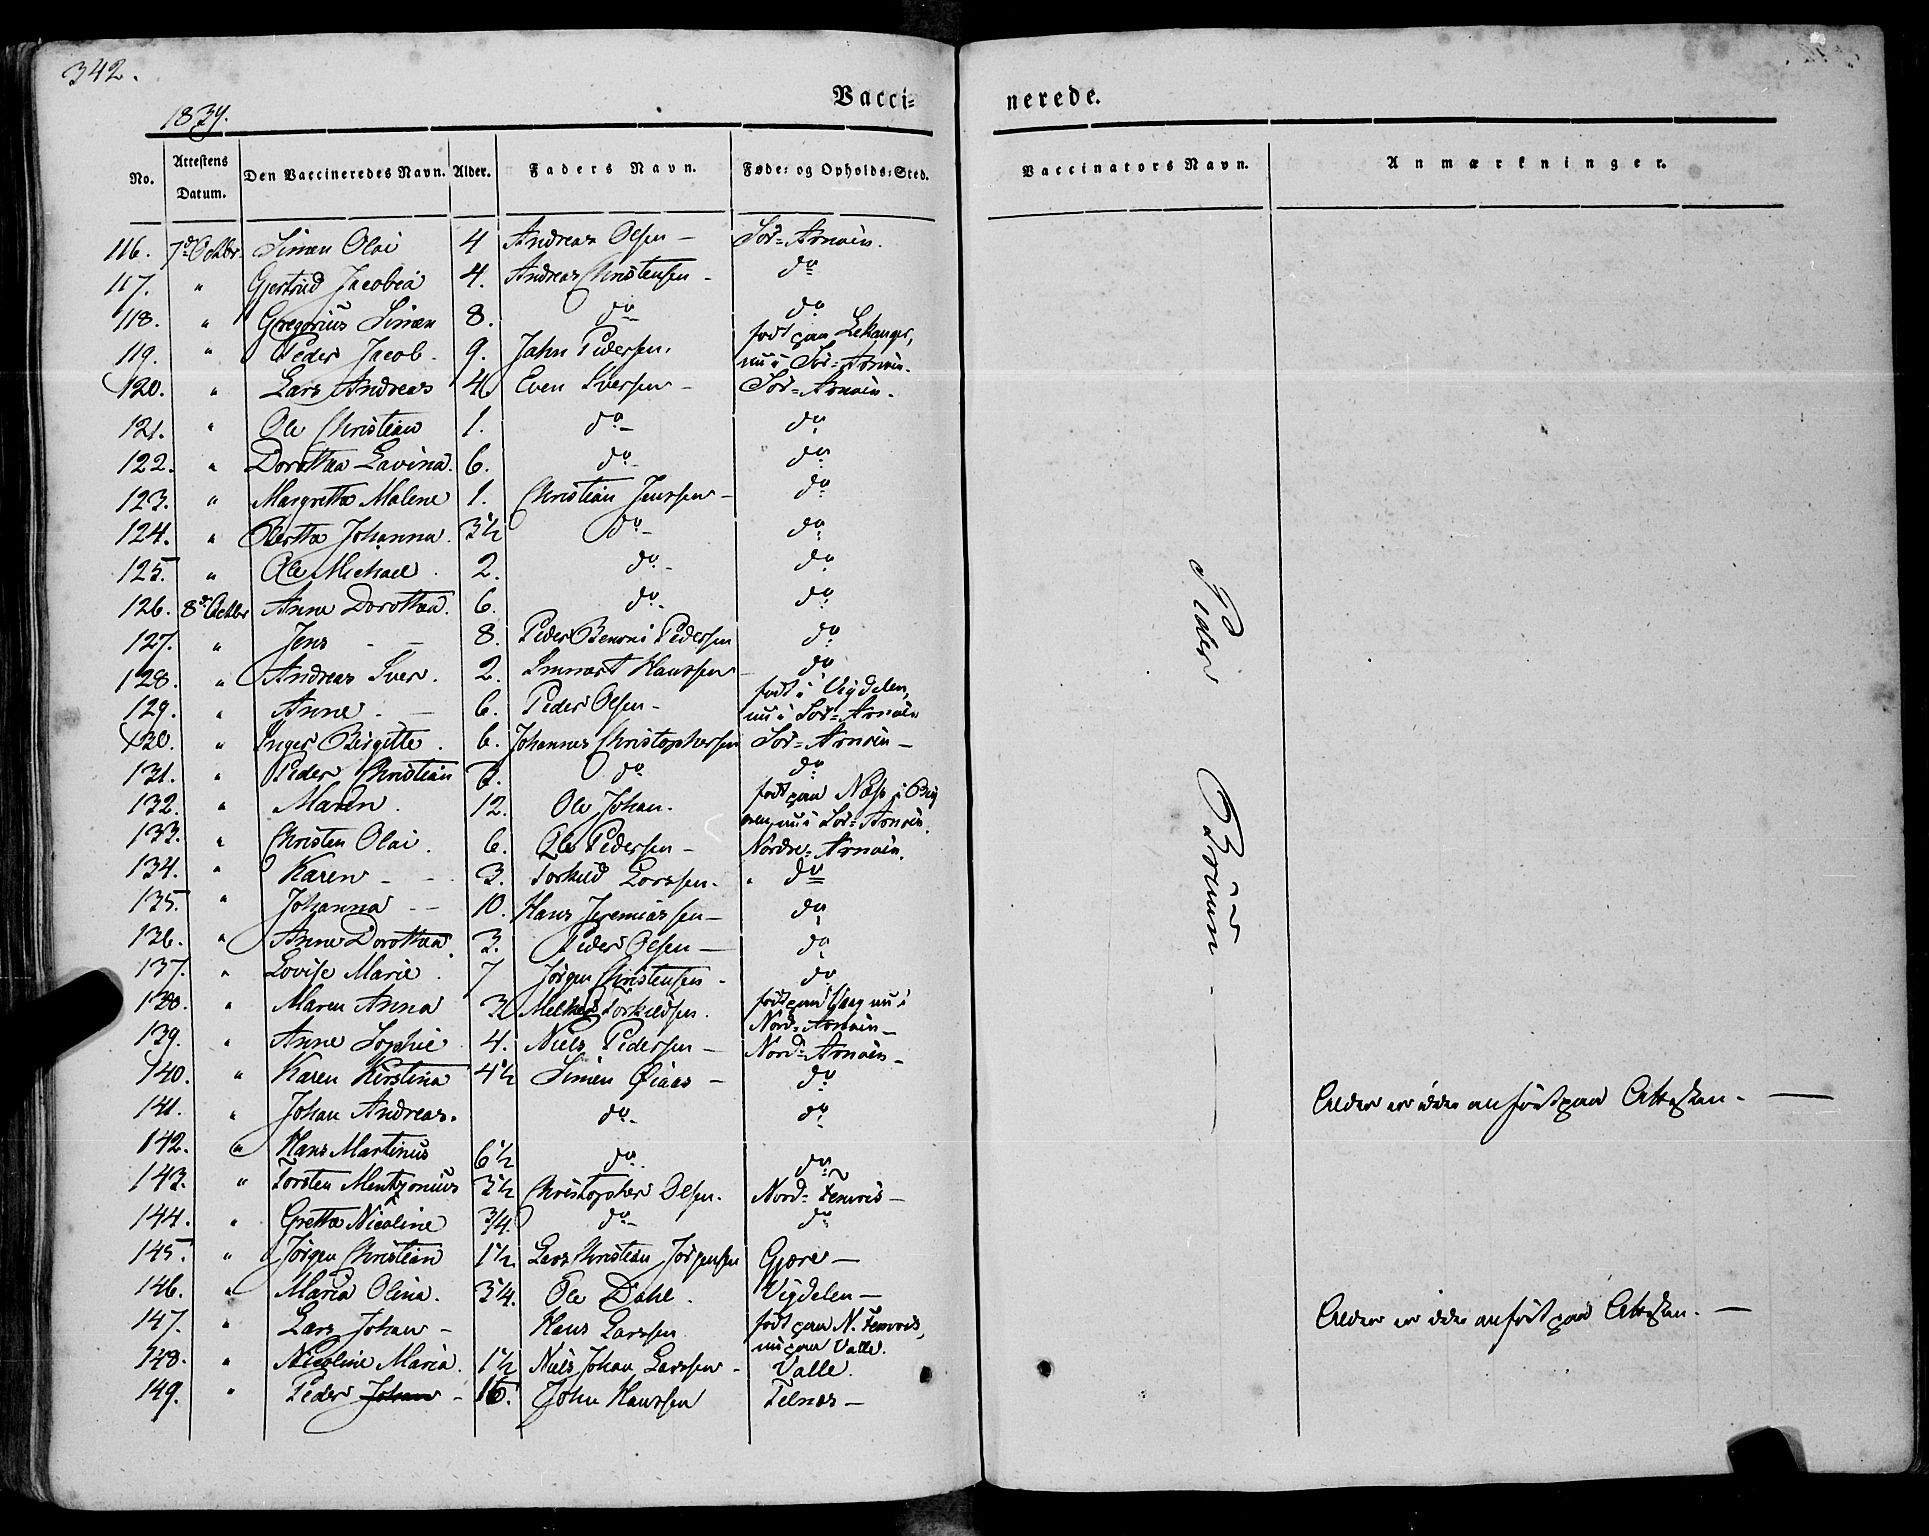 342.
1839.
Vacci- nerede.
No. Attestens Datum. Den Vaccineredes Navn. Alder. Faders Navn. Føde- og Opholds-Sted. Vaccinators Navn. Anmærkninger.
116. 7de Octbr. Simen Olai 4 Andreas Olsen — Sör-Arnøen.
117. " Gjertrud Jacobea 4. Andreas Christensen - do
118. " Gregorius Simen 8. do do
119. " Peder Jacob. 9. Jahn Pedersen. født paa Lekanger, nu i Sör-Arnøen.
120. " Lars Andreas 4 Even Iversen - Sör-Arnøen.
121. " Ole Christian 1. do - do
122. " Dorothea Lavina. 6. do - do
123. " Margretha Malene 1. Christian Jenssen - do
124. " Bertha Johanna. 3 1/2 do - do
125. " Ole Michael. 2. do - do
126. 8de Octbr Anne Dorothea. 6. do - do
127. " Jens - — 8. Peder Benoni Pedersen do
128. " Andreas Iver. 2. Hanssen - do
129. " Anne - — 6. Peder Olsen - født i Vigdelen, nu i Sör-Arnøen
130. " Inger Birgitte. 6. Johannes Christophersen Sör-Arnøen —
131. " Peder Christian 3. do do
132. " Maren. 12. Ole Johan. født paa Næss i nu i Sör-Arnøen.
133. " Christen Olai. 6. Ole Pedersen - Nordre-Arnøen.
134. " Karen - - 3. Torkild Larssen. do
135. " Johanna - - 10. Hans Jeremiassen — do
136. " Anne Dorothea. 3. Peder Olsen — do
137. " Lovise Marie. 7 Jörgen Christensen - do
138. " Maren Anna 3 Torkildsen. født paa Vaag nu i Nord-Arnøen —
139. " Anne Sophie 4. Niels Pedersen — Nord-Arnøen -
140. " Karen Kirstina 4 1/2 Simen — do
141. " Johan Andreas. do - do Alder er ikke anfört paa Attesten. —
142. " Hans Martinus 6 1/2 do. do
143. " Torsten Mentzonius 3 1/2 Christopher Olsen. Nord-Femris —
144. " Gretha Nicoline 3/4. do - do
145. " Jörgen Christian 1 1/2 Lars Christian Jörgensen Gjære —
146. " Maria Olina. 3/4. Ole Dahl. Vigdelen —
147. " Lars Johan — Hans Larssen født paa N. Femris, nu paa Valle. Alder er ikke anfört paa Attesten. —
148. " Nicoline Maria. 1 1/2 Niels Johan Larssen - Valle.
149. " Peder Johan - 15. John Hanssen Felnes —
Peder Bruun - —